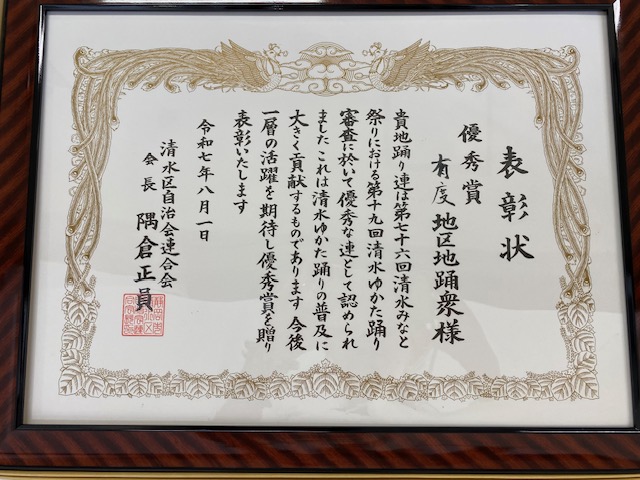 表彰状
優秀賞
有度地区地踊衆様
貴地踊り連は第七十六回清水みなと
祭りにおける第十九回清水ゆかた踊り
審査に於いて優秀な連として認められ
ましたこれは清水ゆかた踊りの普及に
大きく貢献するものであります今後
一層の活躍を期待し優秀賞を贈り
表彰いたします
令和七年八月一日
清水区自治会連合会
会長 隅倉正員